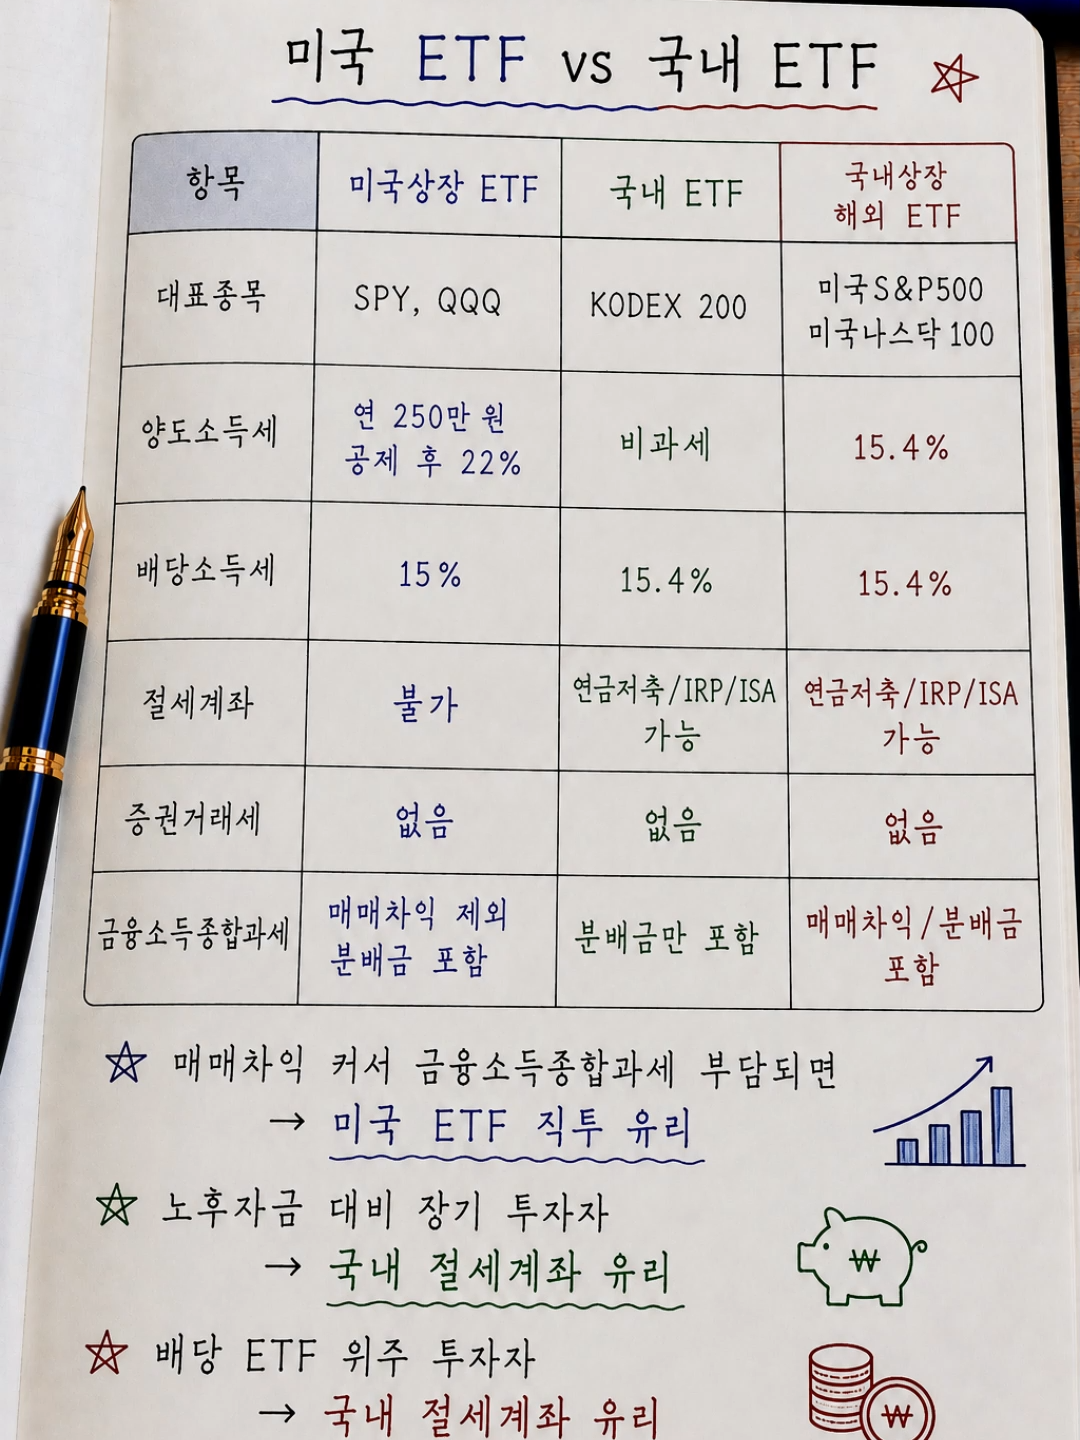 미국 ETF vs 국내 ETF
항목
미국상장 ETF
국내 ETF
국내상장
해외 ETF
대표종목
SPY, QQQ
KODEX 200
미국S&P500
미국나스닥100
양도소득세
연 250만원
공제 후 22%
비과세
15.4%
배당소득세
15%
15.4%
15.4%
절세계좌
불가
연금저축/IRP/ISA
가능
연금저축/IRP/ISA
가능
증권거래세
없음
없음
없음
금융소득종합과세
매매차익 제외
분배금 포함
분배금만 포함
매매차익/분배금
포함
매매차익 커서 금융소득종합과세 부담되면
→ 미국 ETF 직투 유리
노후자금 대비 장기 투자자
→ 국내 절세계좌 유리
₩
배당 ETF 위주 투자자
→ 국내 절세계좌 유리
₩